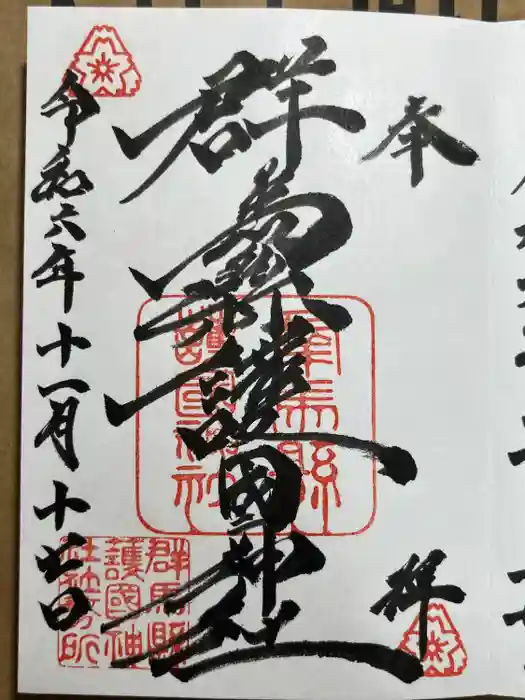 奉拝
群馬縣護國神社
令和六年十一月十七日
群馬縣
護國神社
群馬縣
護國神
社社務所